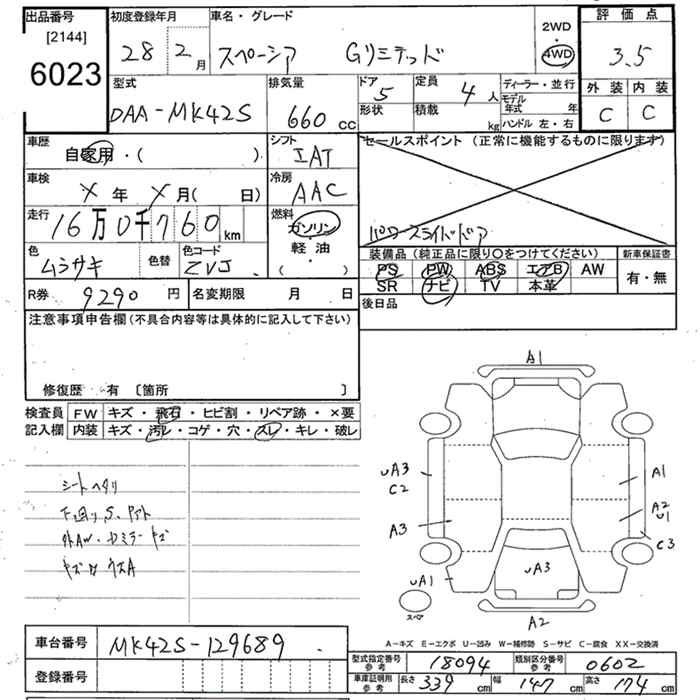 出品番号
[2144]
6023
初度登録年月
28 2月
車名・グレード
スペーシア Gリミテッド
2WD
・
4WD
評価点
3.5
外装 内装
C C
型式
DAA-MK42S
排気量
660 cc
ドア 5
形状
定員 4人
積載 kg
ディーラー・並行
モデル年式 年
ハンドル 左・右
車歴
自家用・( )
シフト
IAT
セールスポイント (正常に機能するものに限ります)
パワースライドドア
車検
X年 X月( 日)
冷房
AAC
走行
16万0千760km
燃料
ガソリン
軽・油
( ・ )
色
ムラサキ
色替
色コード
ZVJ
装備品(純正品に限り○をつけてください)
PS PW ABS エアB AW
SR ナビ TV 本革
新車保証書
有・無
後日品
R券 9290円
名変期限 月 日
注意事項申告欄(不具合内容等は具体的に記入して下さい)
修復歴 有 〔箇所 〕
検査員記入欄
FW キズ・飛石・ヒビ割・リペア跡・×要
内装 キズ・汚レ・コゲ・穴・スレ・キレ・破レ
シートヘタリ
下回りS.
外AW.
A1
UA3
C2
A3
UA1
A1
A2
U1
C3
UA3
A2
スペア
A-キズ E-エクボ U-凹み W-補修跡 S-サビ C-腐食 XX-交換済
車台番号 MK42S-129689
登録番号
型式指定番号参考 18094
類別区分番号参考 0602
車庫証明用参考
長さ 339cm 幅 147cm 高さ 174cm